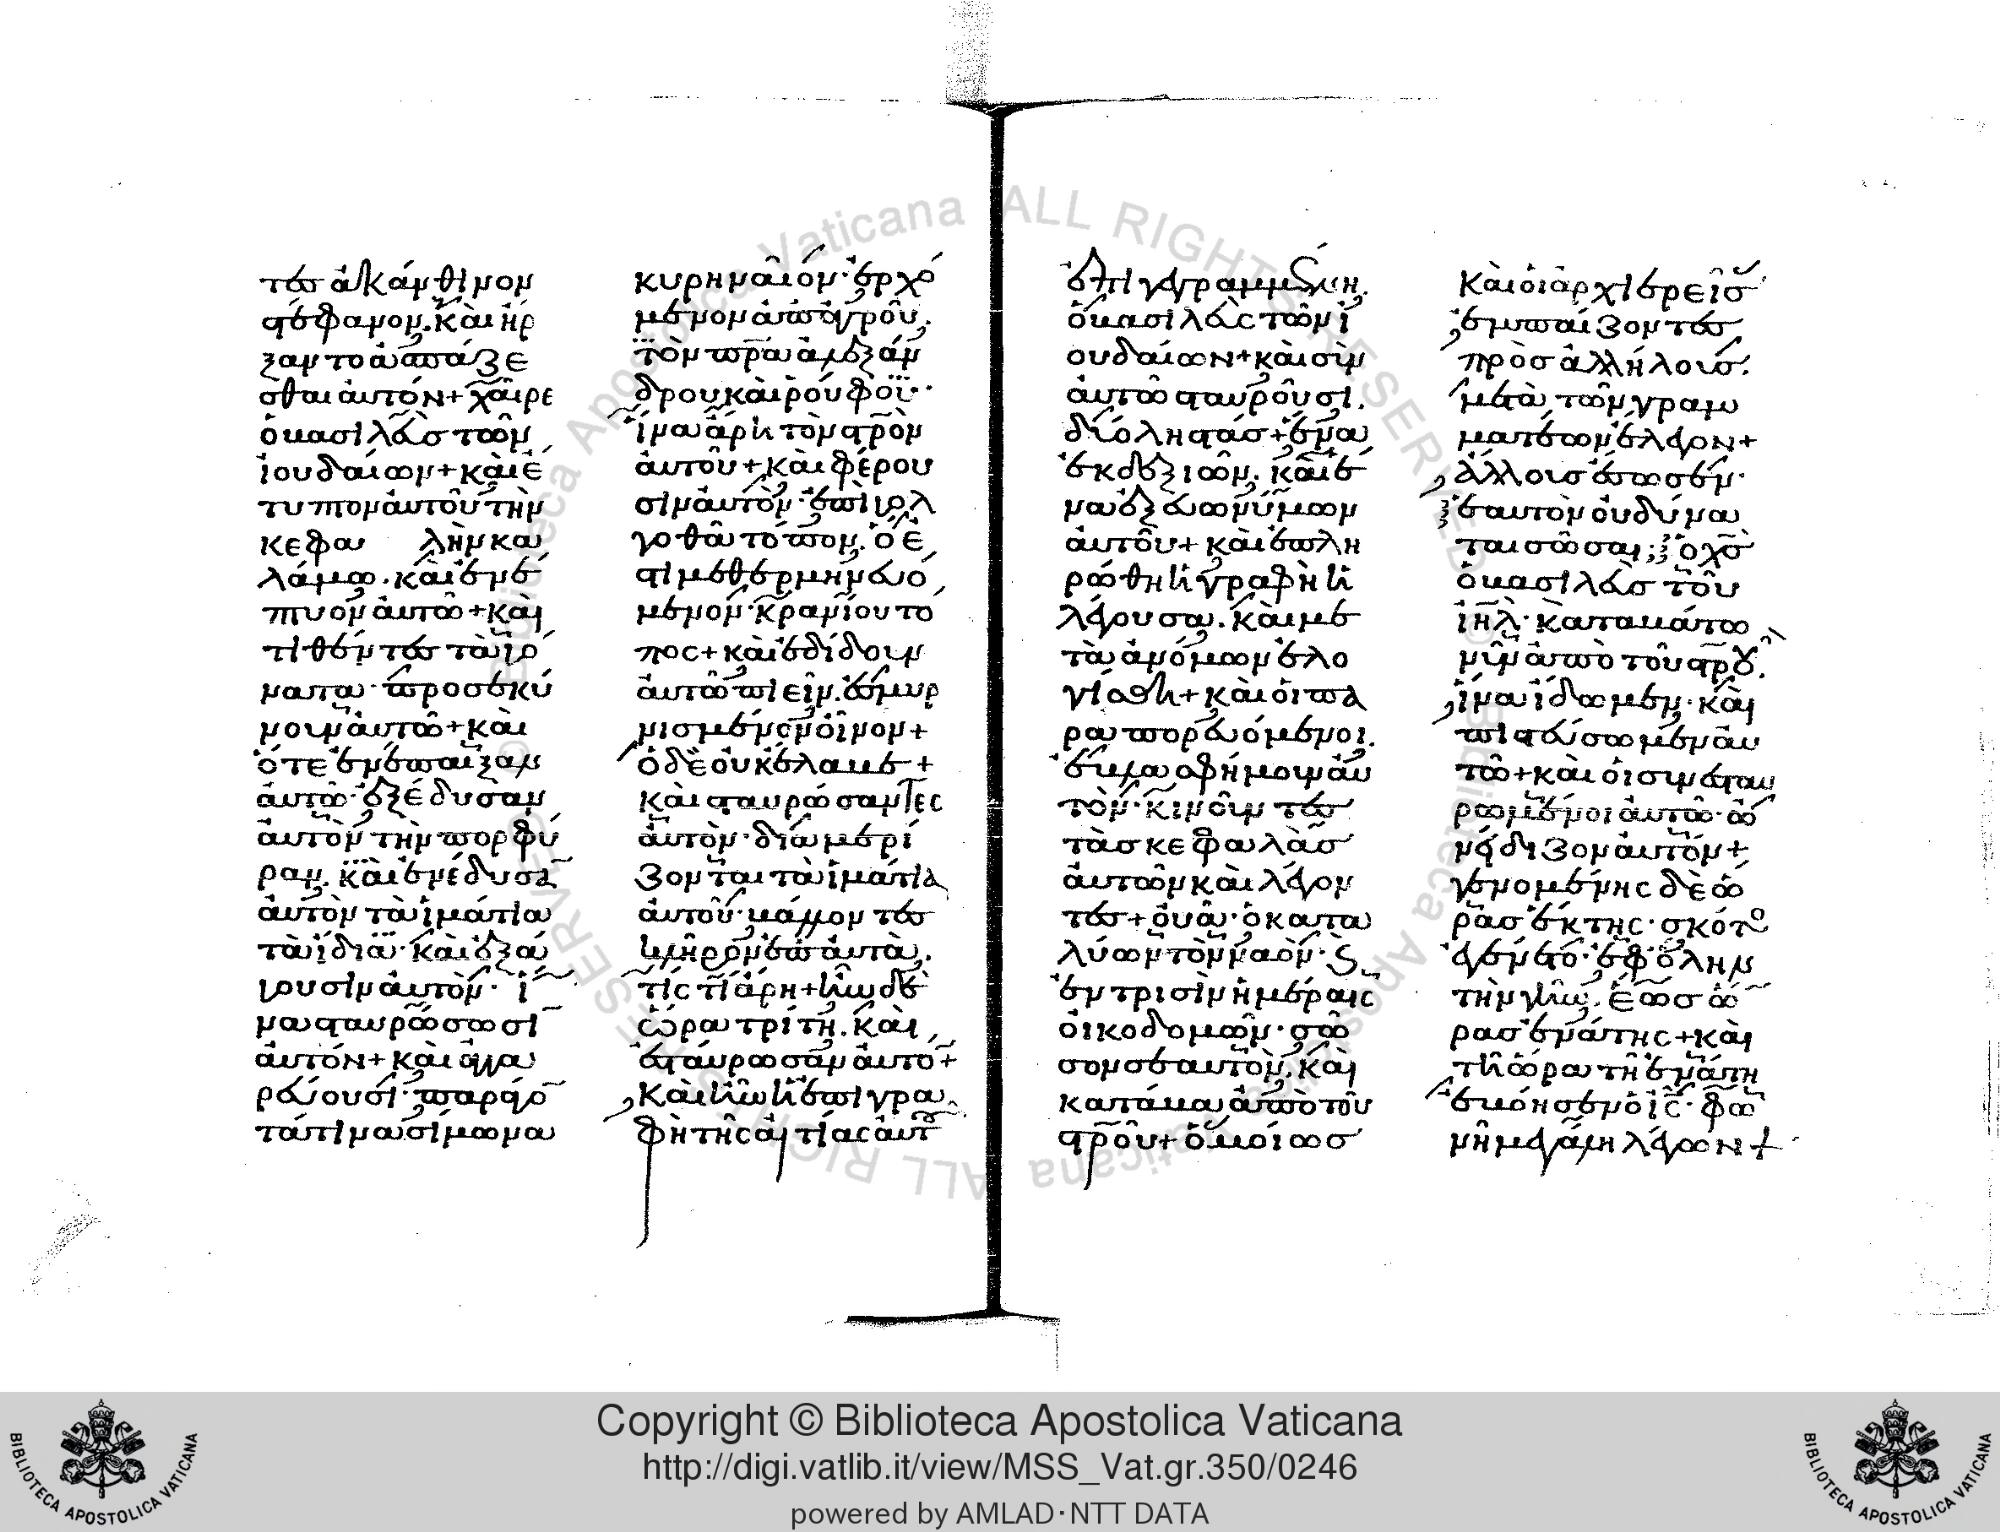 τες ἀκάνθινον
στέφανον. καὶ ἤρ
ξαντο ἀσπάζε
σθαι αὐτόν + χαῖρε
ὁ βασιλεὺς τῶν
ἰουδαίων + καὶ ἔ
τυπτον αὐτοῦ τὴν
κεφα λὴν κα
λάμω. καὶ ἐνέ
πτυον αὐτῶ + καὶ
τιθέντες τὰ γό
νατα· προσεκύ
νουν αὐτῶ + καὶ
ὅτε ἐνέπαιξαν
αὐτῶ· ἐξέδυσαν
αὐτὸν τὴν πορφύ
ραν. καὶ ἐνέδυσα
αὐτὸν τὰ ἱμάτια
τὰ ἴδια· καὶ ἐξά
γουσιν αὐτὸν· ἵ
να σταυρώσωσι
αὐτόν + καὶ ἀγγα
ρεύουσι· παράγο
τά τινα σίμωνα
κυρηναῖον· ἐρχό
μενον ἀπ' ἀγροῦ.
τὸν πρα ἀλεξάν
δρου καὶ ῥούφου·
ἵνα ἄρη τὸν στρὸν
αὐτοῦ + καὶ φέρου
σιν αὐτὸν· ἐπὶ γολ
γοθᾶ τόπον. ὅ ἐ
στι μεθερμηνευό
μενον· κρανίου τό
πος + καὶ ἐδίδουν
αὐτῶ πιεῖν. ἐσμυρ
νισμένον οἶνον +
ὁ δὲ οὐκ ἔλαβε +
καὶ σταυρώσαντες
αὐτὸν· διαμερί
ζονται τὰ ἱμάτια
αὐτοῦ· βάλλοντες
κλῆρον ἐπ' αὐτὰ.
τίς τί ἄρη + ἦν δὲ
ὥρα τρίτη. καὶ
ἐσταύρωσαν αὐτό +
Καὶ ἦν ἡ ἐπιγρα
φὴ τῆς αἰτίας αὐτ
ἐπιγεγραμμένη.
ὁ βασιλεὺς τῶν ἰ
ουδαίων + καὶ σὺν
αὐτῶ σταυροῦσι.
δύο ληστάς + ἕνα
ἐκ δεξιῶν. καὶ ἕ
να ἐξ εὐωνύμων
αὐτοῦ + καὶ ἐπλη
ρώθη ἡ γραφὴ ἡ
λέγουσα. καὶ με
τὰ ἀνόμων ἐλο
γίσθη + καὶ οἱ πα
ραπορευόμενοι.
ἐβλασφήμουν αὐ
τὸν· κινοῦντες
τὰς κεφαλὰς
αὐτῶν καὶ λέγον
τες + οὐὰ· ὁ κατα
λύων τὸν ναὸν· καὶ
ἐν τρισὶν ἡμέραις
οἰκοδομῶν· σῶ
σον σεαυτὸν. καὶ
κατάβα ἀπὸ τοῦ
στροῦ + ὁμοίως
καὶ οἱ ἀρχιερεῖς
ἐμπαίζοντες
πρὸς ἀλλήλους.
μετὰ τῶν γραμ
ματέων ἔλεγον +
ἄλλους ἔσωσεν·
ἑαυτὸν οὐ δύνα
ται σῶσαι; ὁ χς
ὁ βασιλεὺς τοῦ
ιηλ· καταβάτω
νῦν ἀπὸ τοῦ στρου.
ἵνα ἴδωμεν· καὶ
πιστεύσωμεν αὐ
τῶ + καὶ οἱ συνεσταυ
ρωμένοι αὐτῶ· ὠ
νείδιζον αὐτόν +
γενομένης δὲ ὥ
ρας ἕκτης· σκότος
ἐγένετο· ἐφ' ὅλην
τὴν γῆν. ἕως ὥ
ρας ἐνάτης + καὶ
τῆ ὥρα τῆ ἐνάτη
ἐβόησεν ὁ ις· φω
νῆ μεγάλη λέγων +
Copyright © Biblioteca Apostolica Vaticana
http://digi.vatlib.it/view/MSS_Vat.gr.350/0246
powered by AMLAD·NTT DATA
BIBLIOTECA APOSTOLICA VATICANA
BIBLIOTECA APOSTOLICA VATICANA